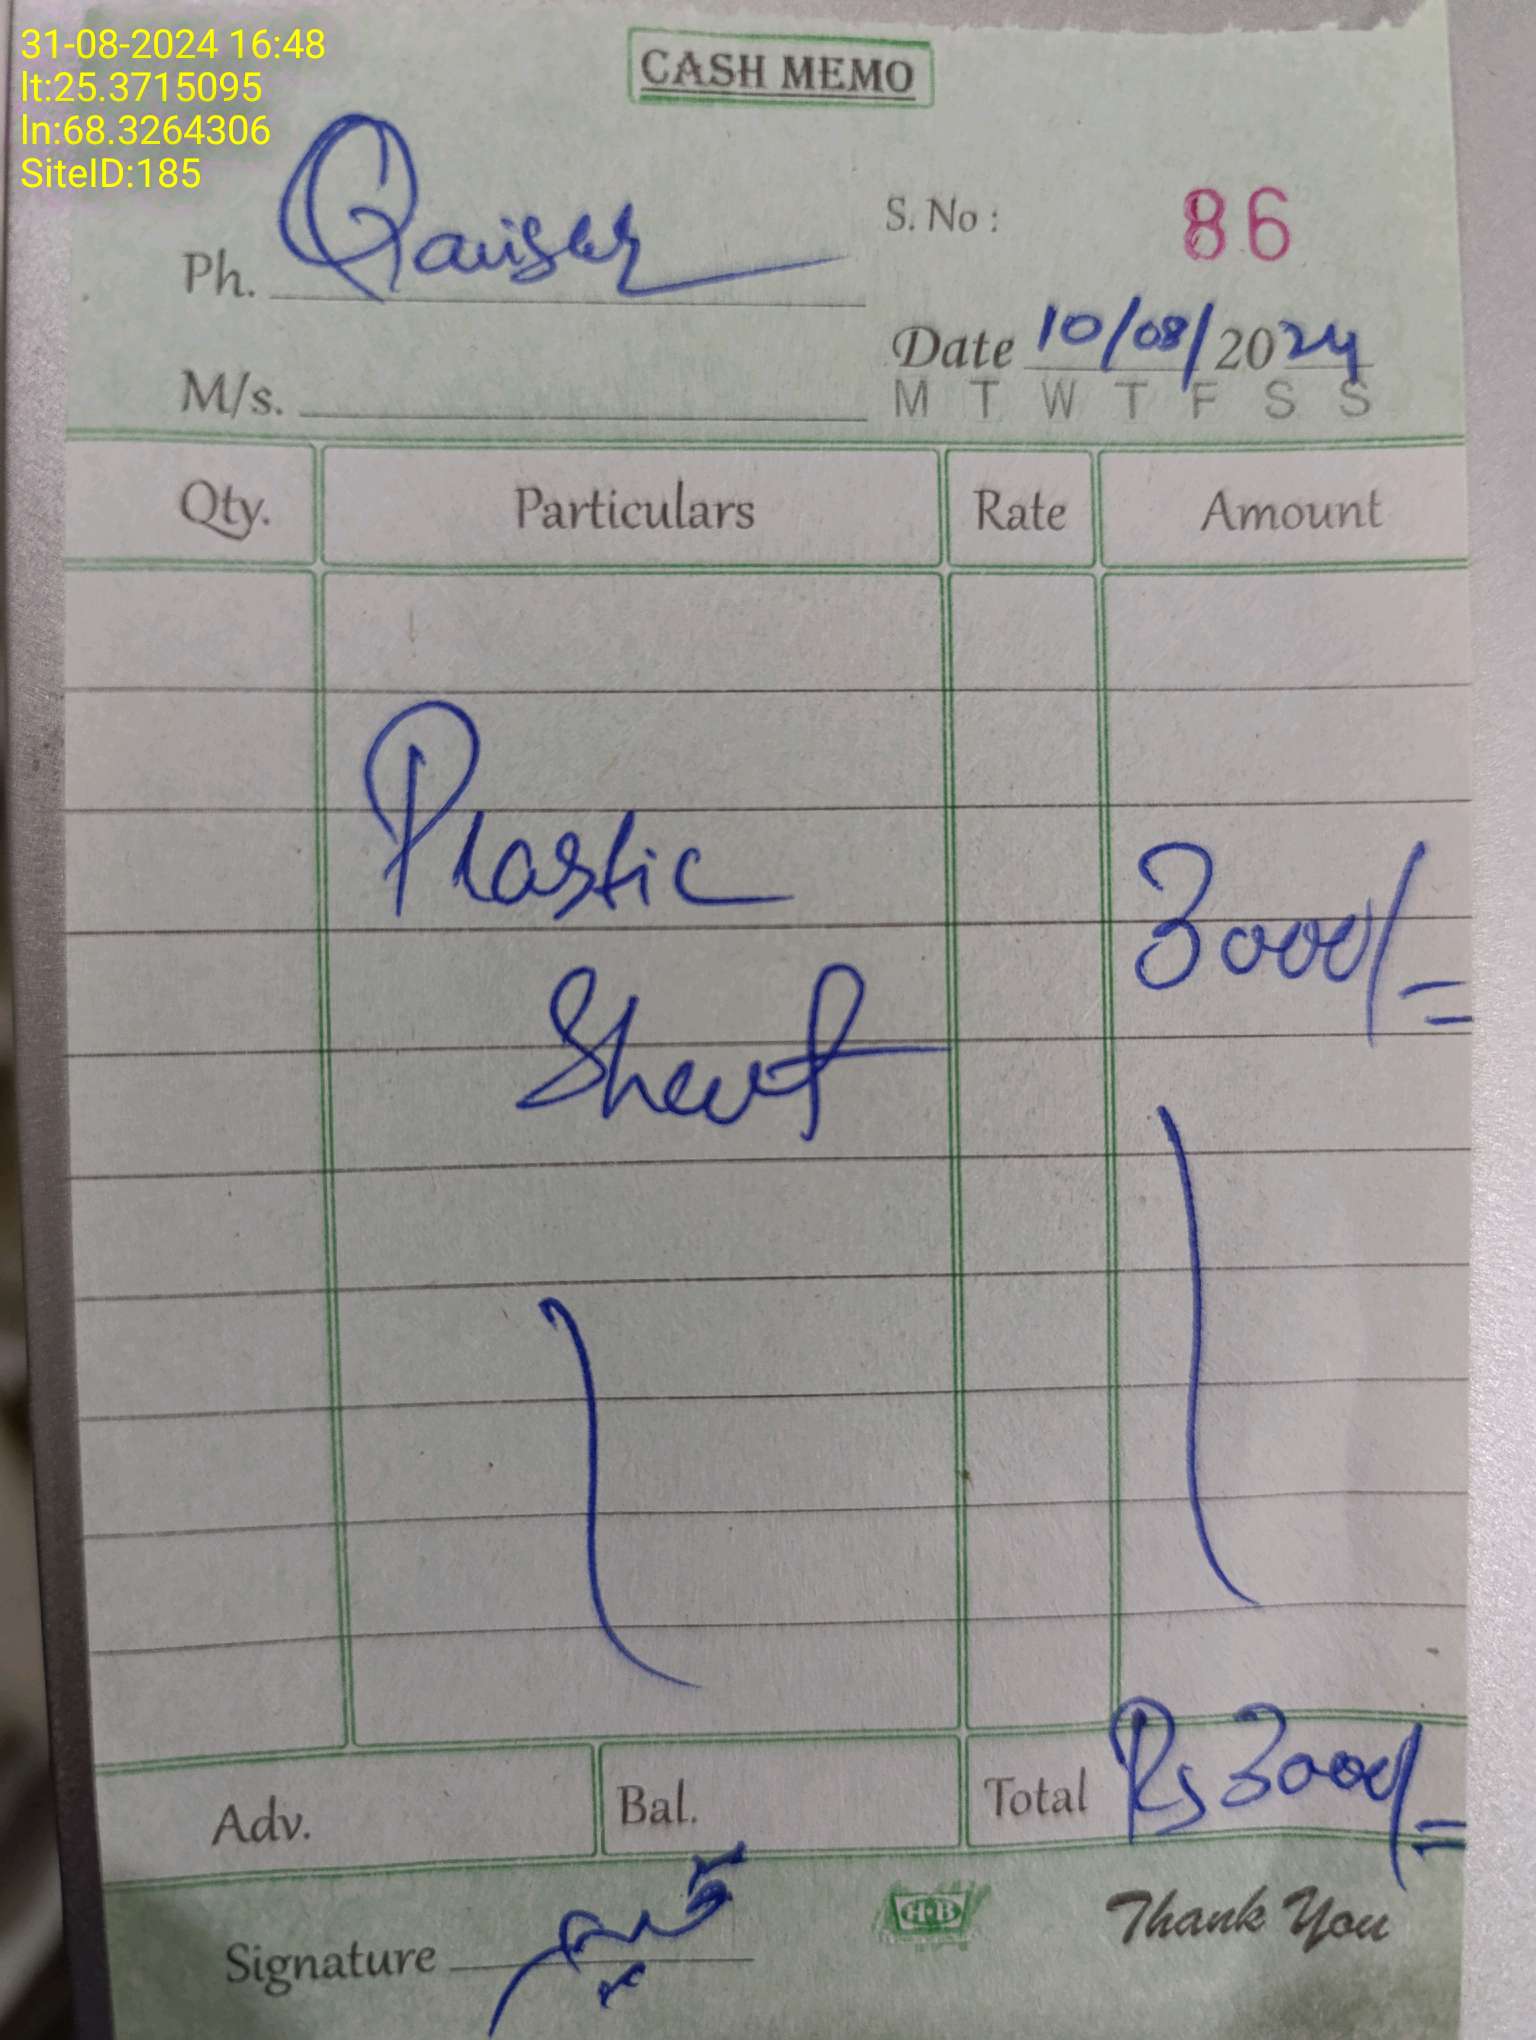 31-08-2024 16:48
lt:25.3715095
ln:68.3264306
SiteID:185
CASH MEMO
Ph. Qaiser
S. No : 86
Date 10/08/2024
M/s.
M T W T F S S
Qty. Particulars Rate Amount
Plastic
3000/=
Sheet
Adv. Bal. Total Rs 3000/=
Signature
H·B
Thank You